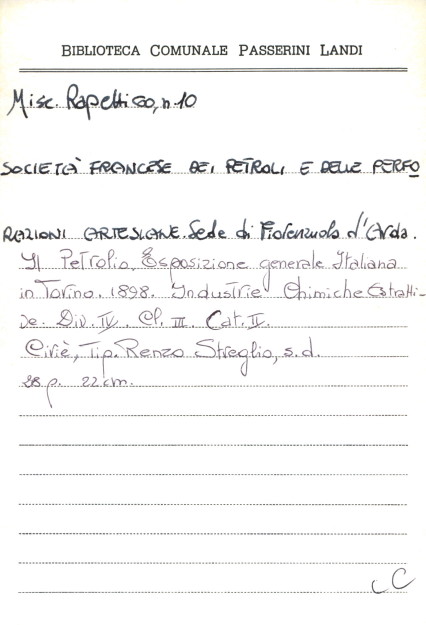 BIBLIOTECA COMUNALE PASSERINI LANDI
Misc. Rapetti 60, n. 10
SOCIETÀ FRANCESE DEI PETROLI E DELLE PERFO
RAZIONI ARTESIANE. Sede di Fiorenzuola d'Arda.
Il Petrolio. Esposizione generale Italiana
in Torino. 1898. Industrie Chimiche Estratti-
ve. Div. IV. Cl. III. Cat. II.
Ciriè, Tip. Renzo Streglio, s.d.
28 p. 22 cm.
CC